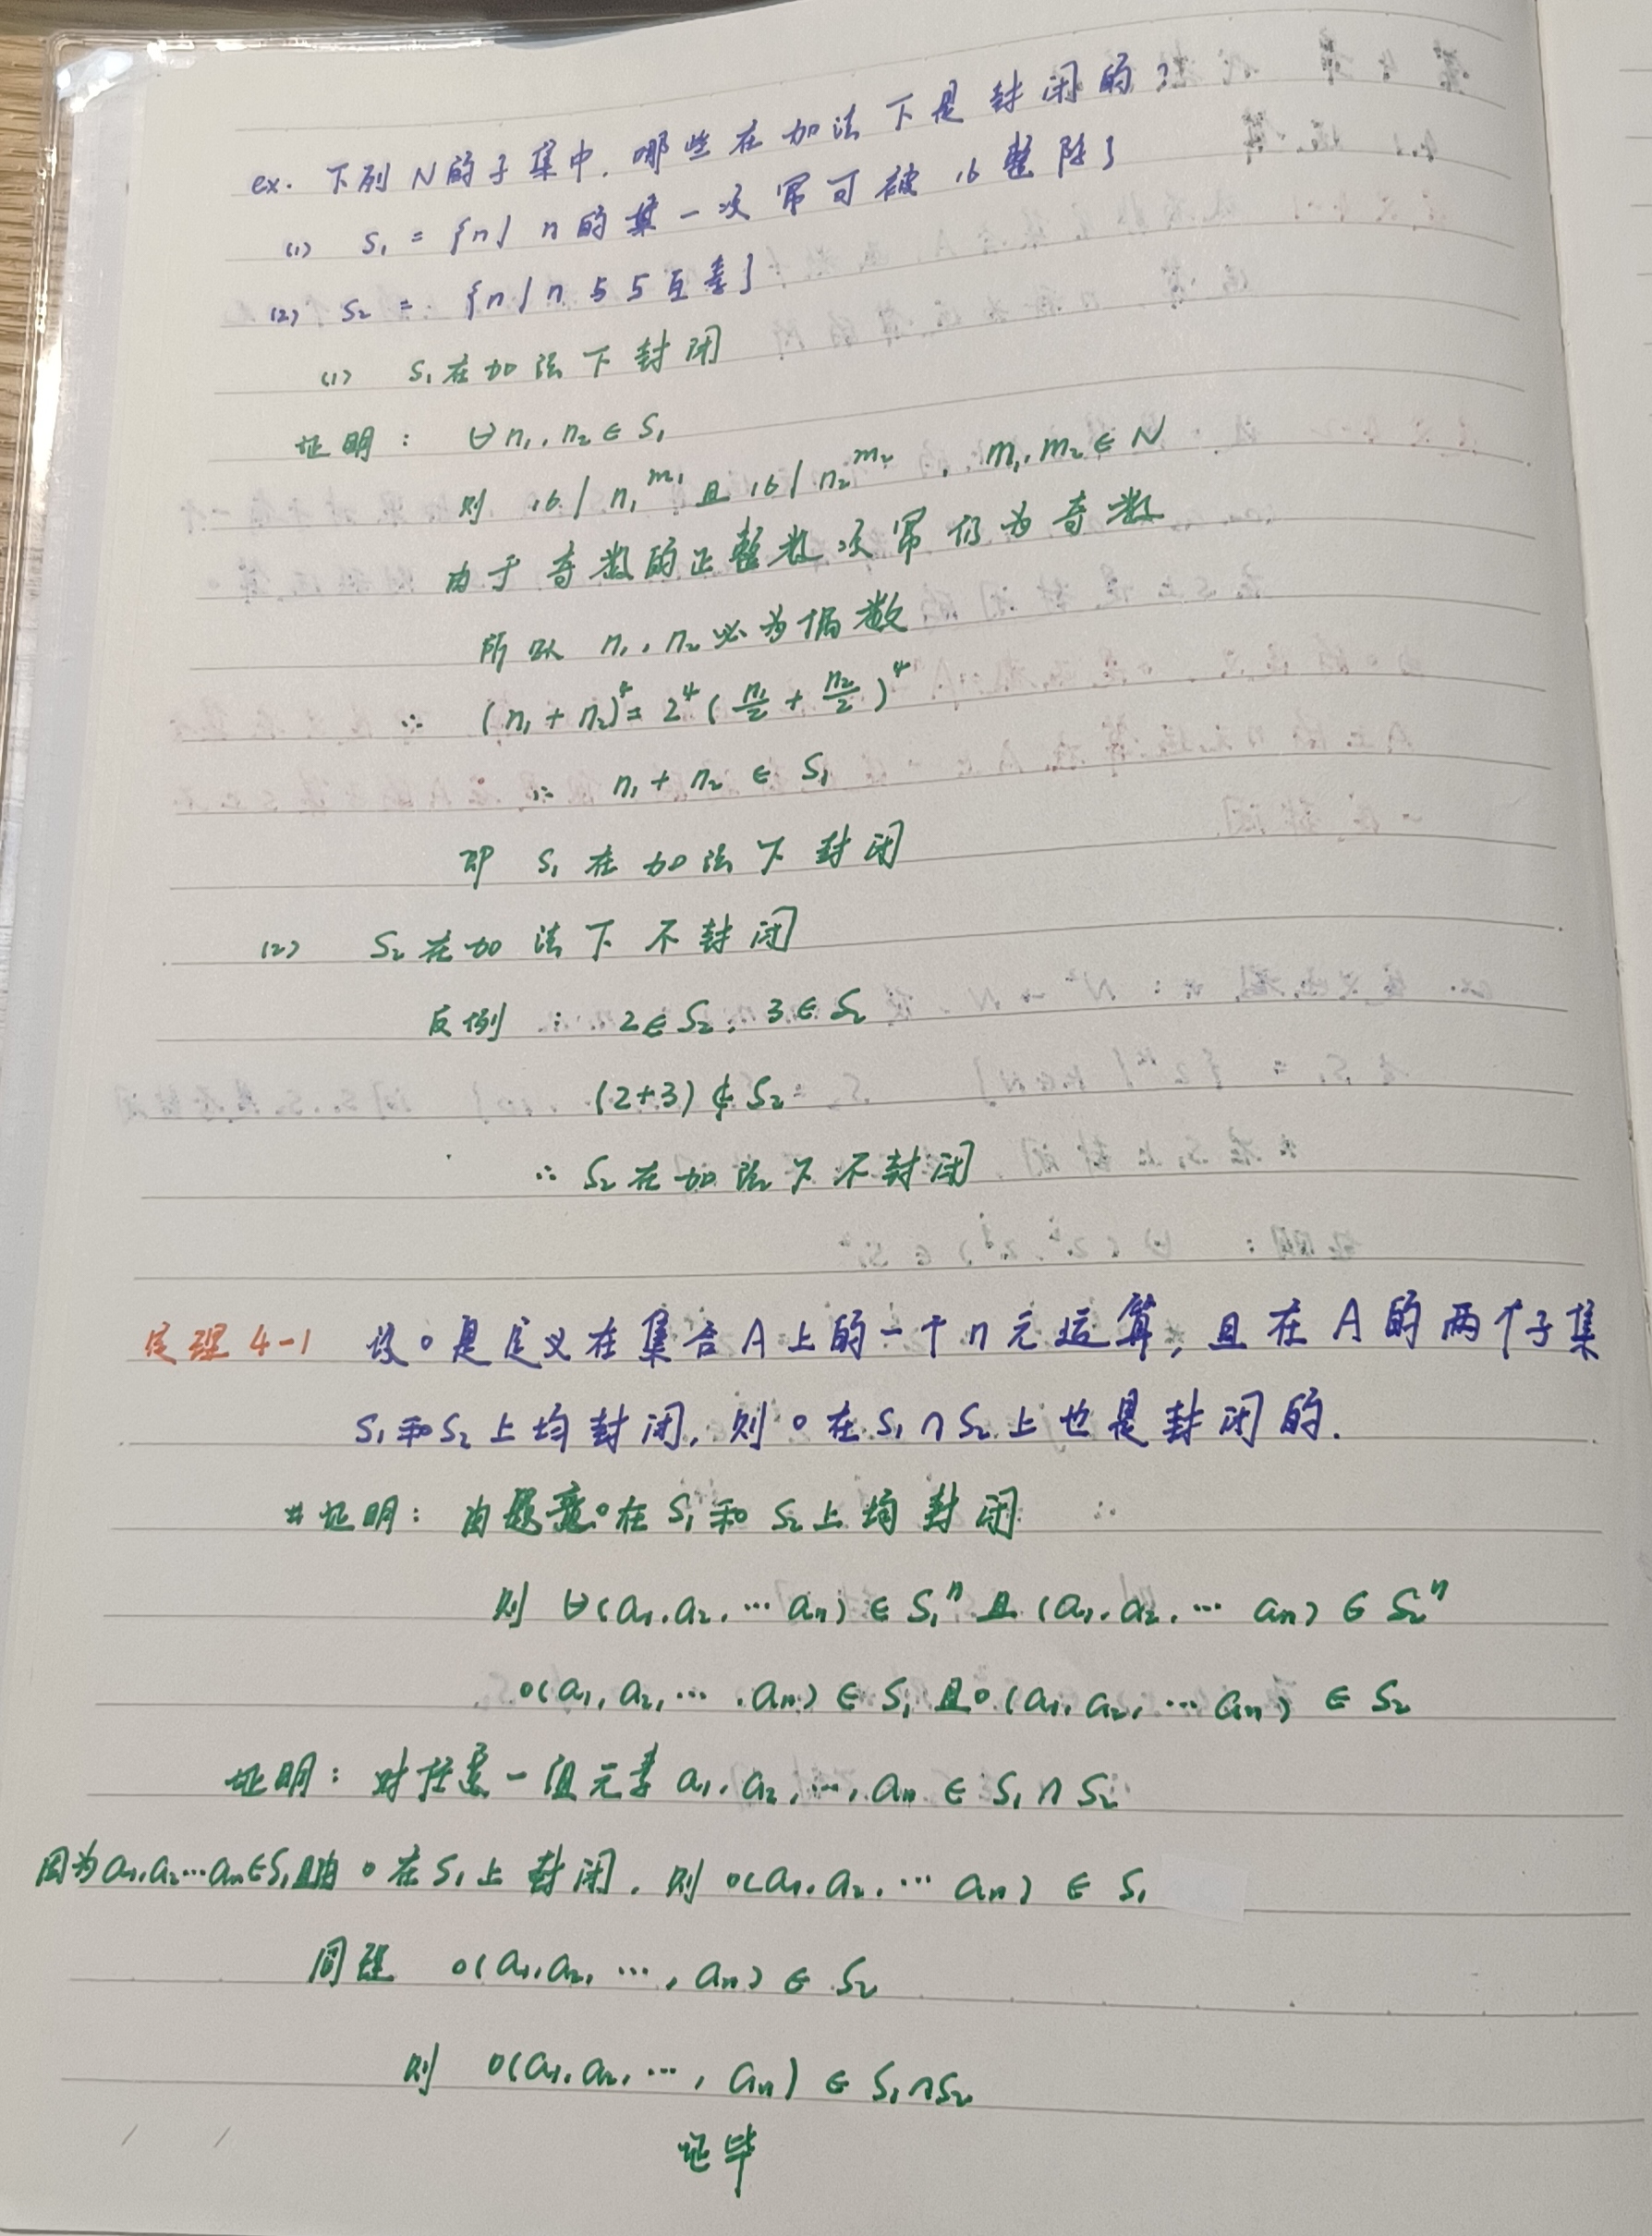 ex. 下列 N 的子集中, 哪些在加法下是封闭的?
(1) S₁ = {n | n 的某一次幂可被 16 整除}
(2) S₂ = {n | n 与 5 互素}
(1) S₁ 在加法下封闭
证明: ∀ n₁, n₂ ∈ S₁
则 16 | n₁^m₁ 且 16 | n₂^m₂, m₁, m₂ ∈ N
由于奇数的正整数次幂仍为奇数
所以 n₁, n₂ 必为偶数
∴ (n₁ + n₂)⁴ = 2⁴ (n₁/2 + n₂/2)⁴
∴ n₁ + n₂ ∈ S₁
即 S₁ 在加法下封闭
(2) S₂ 在加法下不封闭
反例: 2 ∈ S₂, 3 ∈ S₂
(2+3) ∉ S₂
∴ S₂ 在加法下不封闭
定理 4-1 设∘是定义在集合 A 上的一个 n 元运算, 且在 A 的两个子集
S₁ 和 S₂ 上均封闭, 则∘在 S₁ ∩ S₂ 上也是封闭的.
# 证明: 由题意∘在 S₁ 和 S₂ 上均封闭
则 ∀(a₁, a₂, … aₙ) ∈ S₁ⁿ 且 (a₁, a₂, … aₙ) ∈ S₂ⁿ
∘(a₁, a₂, …, aₙ) ∈ S₁ 且∘(a₁, a₂, … aₙ) ∈ S₂
证明: 对任意一组元素 a₁, a₂, …, aₙ ∈ S₁ ∩ S₂
因为 a₁, a₂ … aₙ ∈ S₁ 且由∘在 S₁ 上封闭, 则 ∘(a₁, a₂, … aₙ) ∈ S₁
同理 ∘(a₁, a₂, …, aₙ) ∈ S₂
则 ∘(a₁, a₂, …, aₙ) ∈ S₁ ∩ S₂
证毕